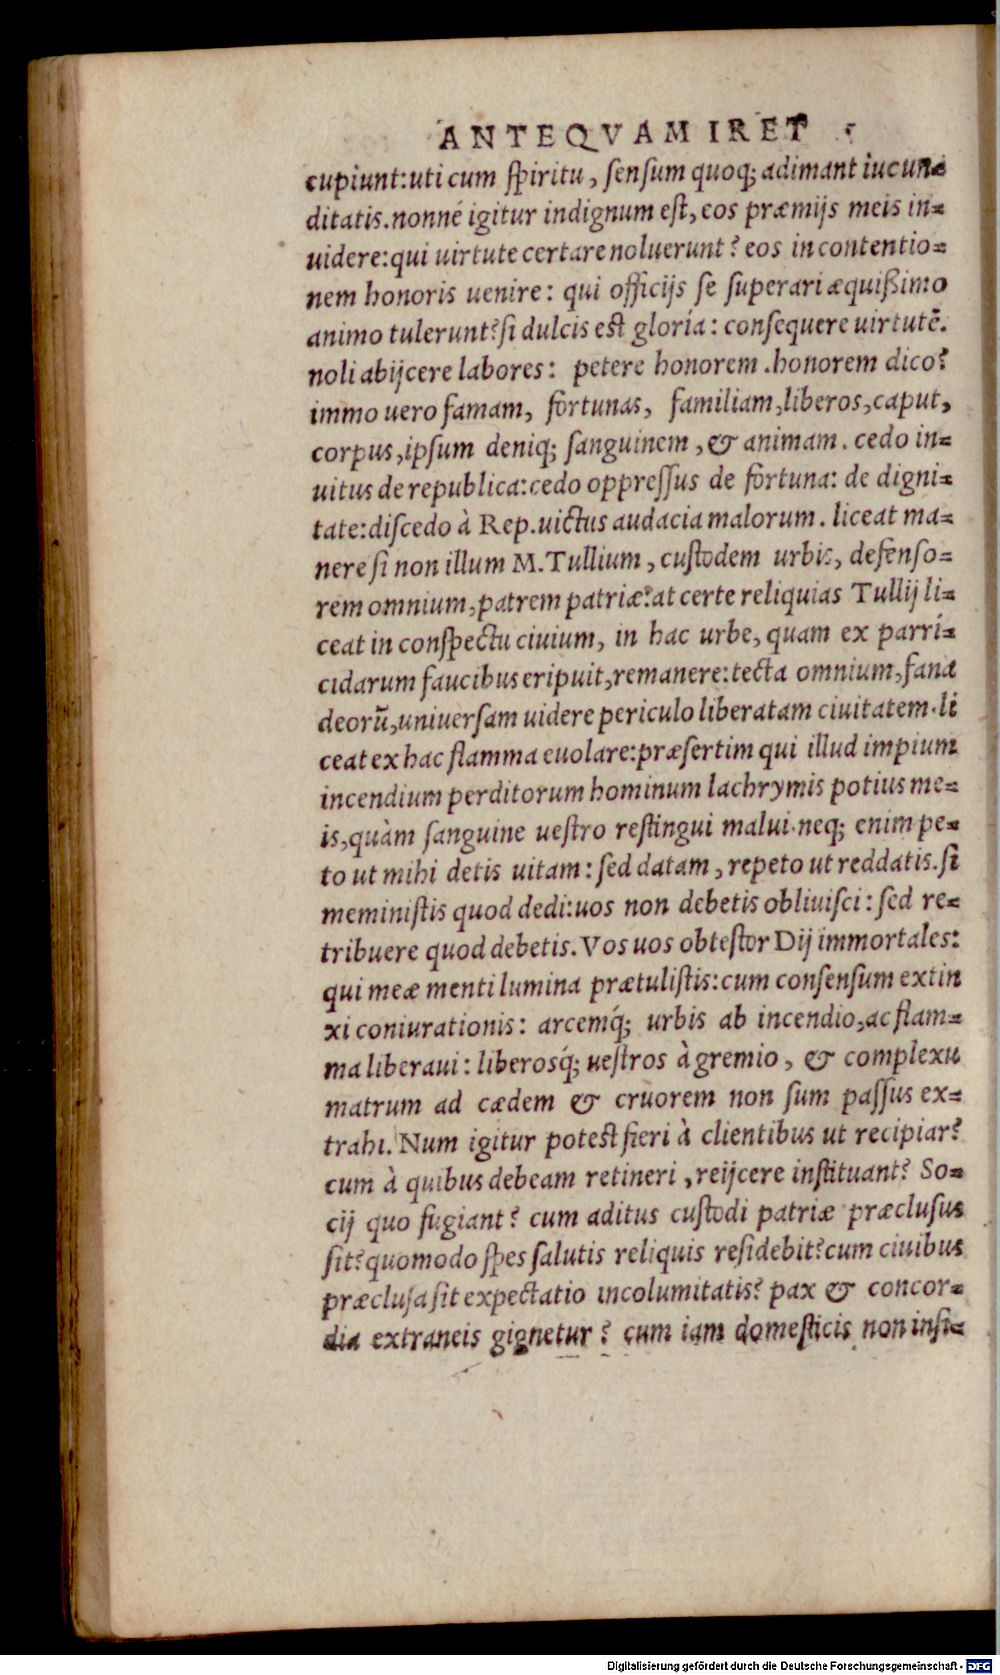 ANTEQVAM IRET
cupiunt: uti cum spiritu, sensum quoq; adimant iucun=
ditatis. nonné igitur indignum est, eos præmijs meis in=
uidere: qui uirtute certare noluerunt? eos in contentio=
nem honoris uenire: qui officijs se superari æquißimo
animo tulerunt? si dulcis est gloria: consequere uirtutē.
noli abijcere labores: petere honorem. honorem dico?
immo uero famam, fortunas, familiam, liberos, caput,
corpus, ipsum deniq; sanguinem, & animam. cedo in=
uitus de republica: cedo oppressus de fortuna: de digni=
tate: discedo à Rep. uictus audacia malorum. liceat ma=
nere si non illum M. Tullium, custodem urbis, defenso=
rem omnium, patrem patriæ? at certe reliquias Tullij li=
ceat in conspectu ciuium, in hac urbe, quam ex parri=
cidarum faucibus eripuit, remanere: tecta omnium, fana
deorū, uniuersam uidere periculo liberatam ciuitatem. li
ceat ex hac flamma euolare: præsertim qui illud impium
incendium perditorum hominum lachrymis potius me=
is, quàm sanguine uestro restingui malui. neq; enim pe=
to ut mihi detis uitam: sed datam, repeto ut reddatis. si
meministis quod dedi: uos non debetis obliuisci: sed re=
tribuere quod debetis. Vos uos obtestor Dij immortales:
qui meæ menti lumina prætulistis: cum consensum extin
xi coniurationis: arcemq́; urbis ab incendio, ac flam=
ma liberaui: liberosq́; uestros à gremio, & complexu
matrum ad cædem & cruorem non sum passus ex=
trahi. Num igitur potest fieri à clientibus ut recipiar?
cum à quibus debeam retineri, reijcere instituant? So=
cij quo fugiant? cum aditus custodi patriæ præclusus
sit? quomodo spes salutis reliquis residebit? cum ciuibus
præclusa sit expectatio incolumitatis? pax & concor=
dia extraneis gignetur? cum iam domesticis non insi=
Digitalisierung gefördert durch die Deutsche Forschungsgemeinschaft - DFG